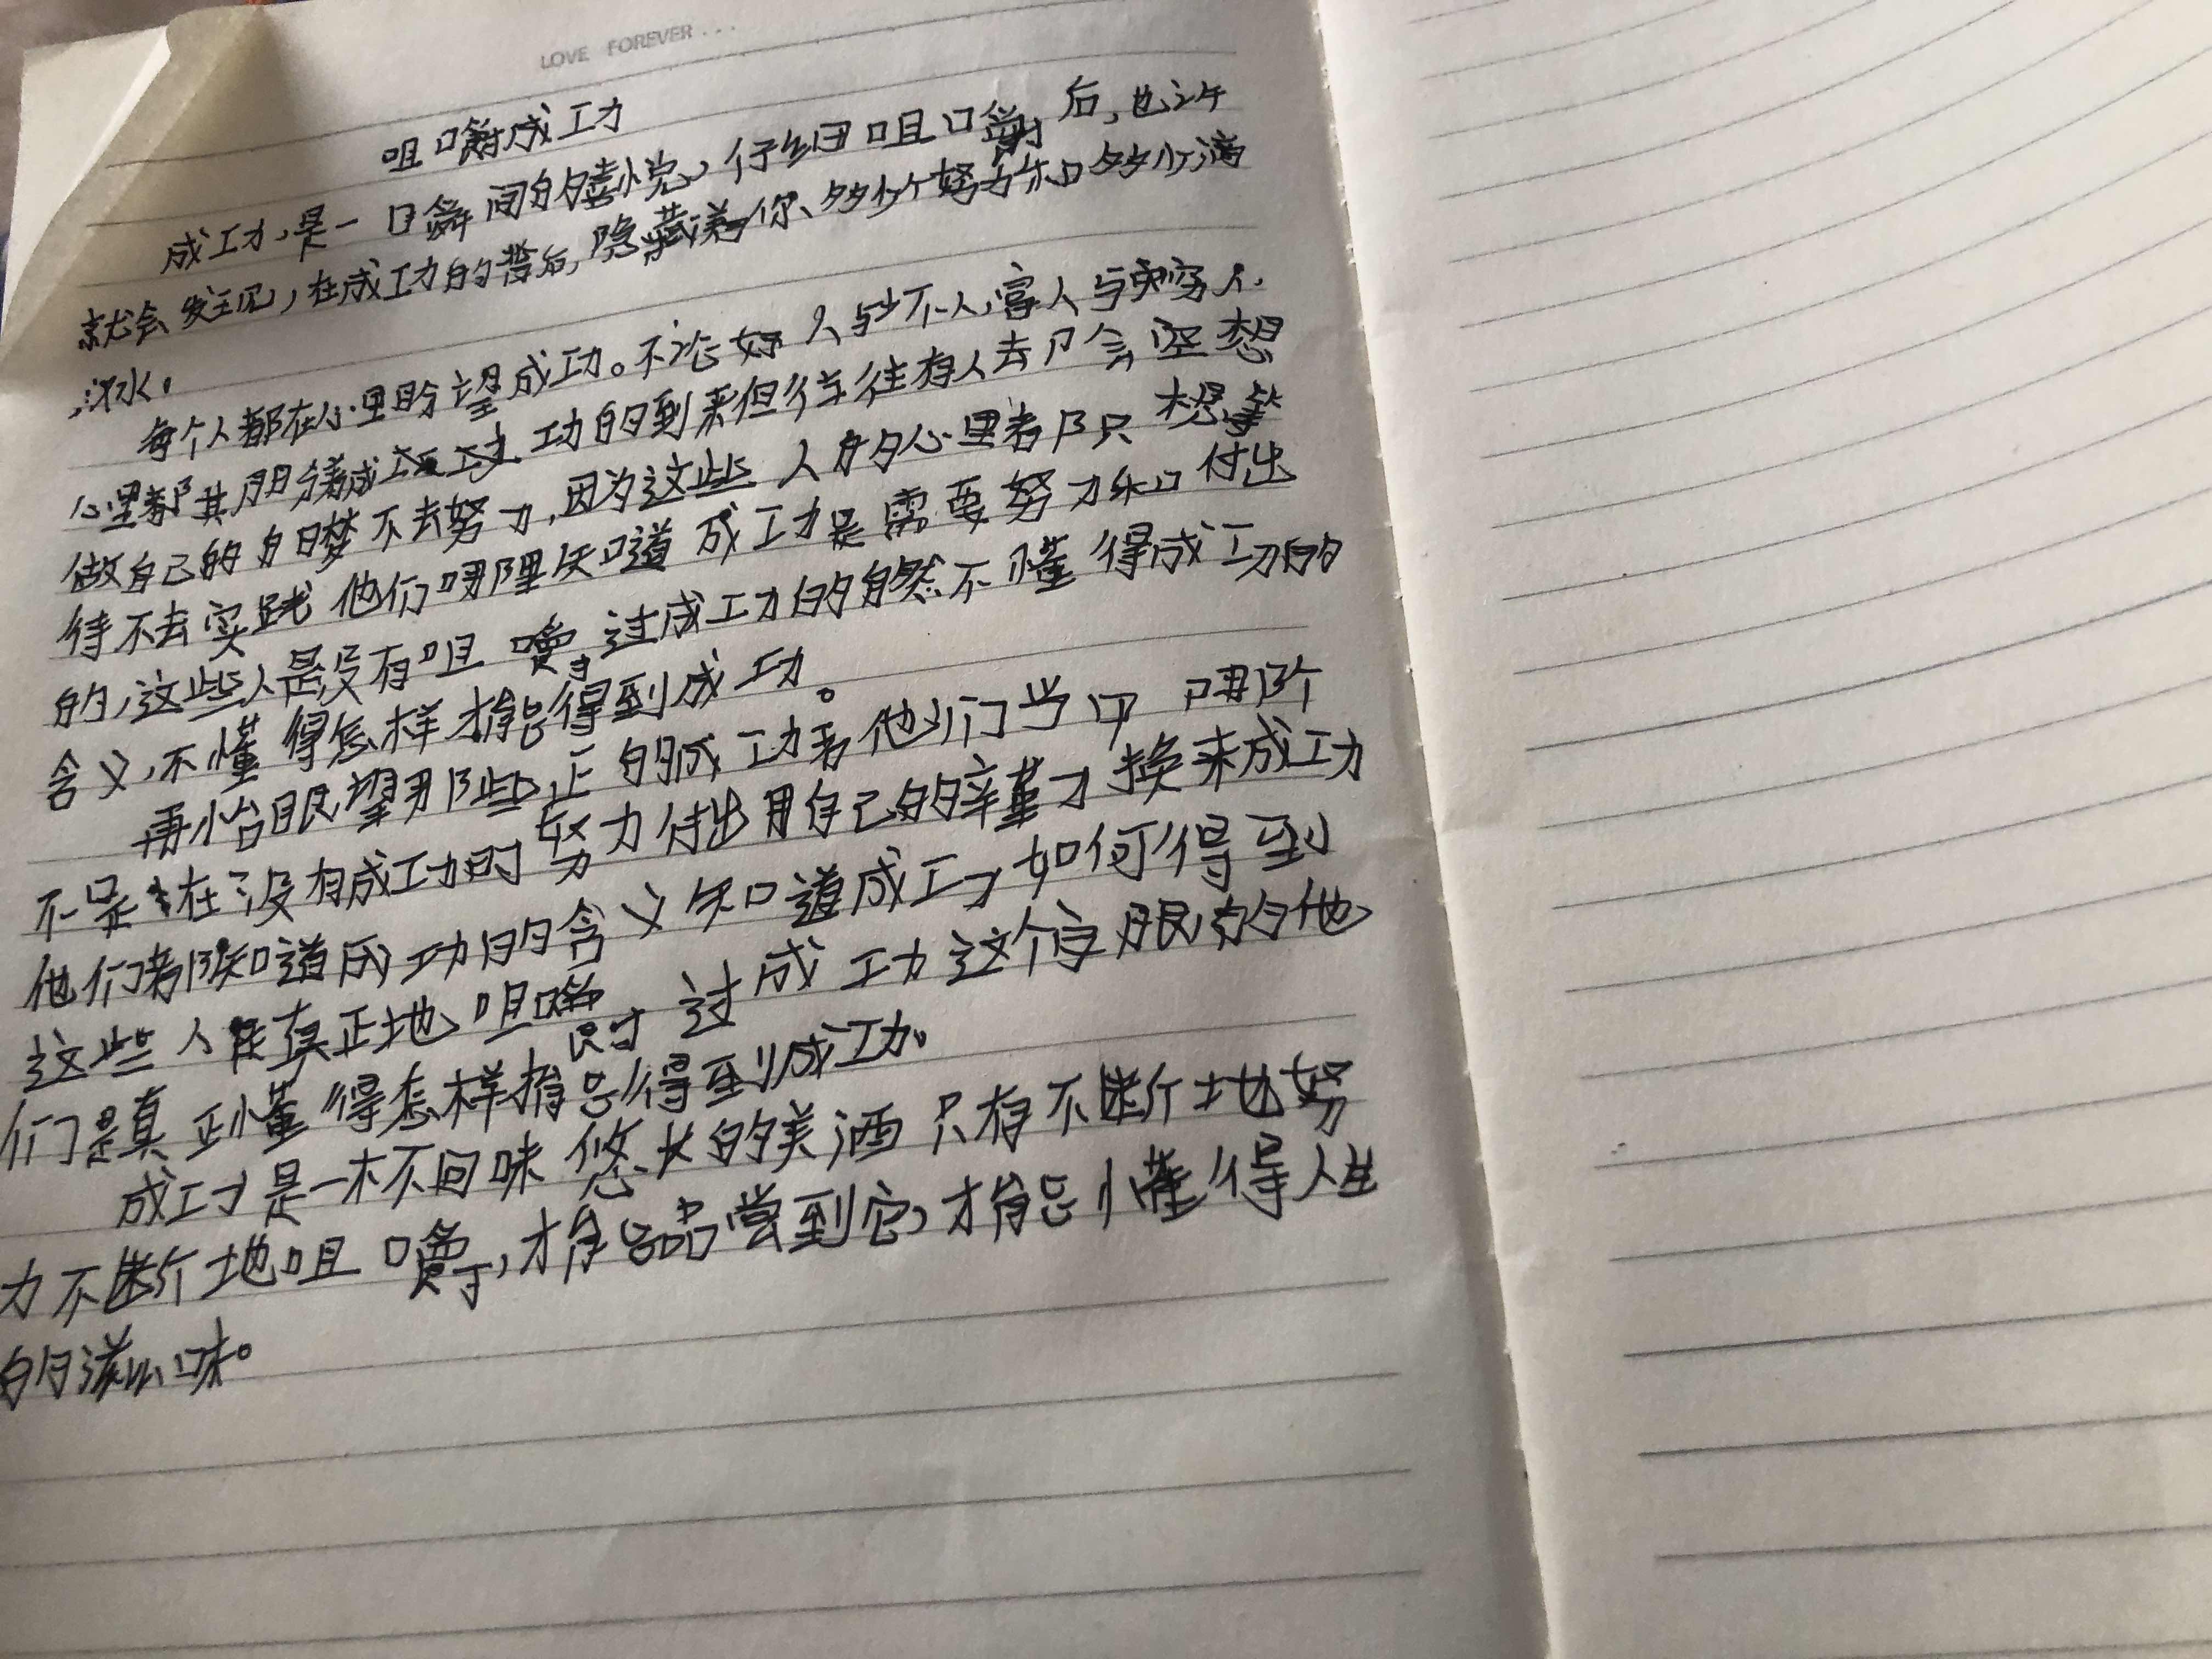 LOVE FOREVER...
咀嚼成功
成功,是一瞬间的喜悦,仔细咀嚼后,也许
就会发现,在成功的背后,隐藏着你、多少个努力和多少滴
汗水。
每个人都在心里盼望成功。不论好人与坏人,富人与穷人.
心里都其朋待着成功的到来但往往有人去只会空想
做自己的白日梦不去努力,因为这些人的心里都只想等
待不去实践他们哪里知道成功是需要努力和付出
的,这些人是没有咀嚼过成功的自然不懂得成功的
含义,不懂得怎样才能得到成功。
再抬眼望那些正的成功者他们当中哪个
不是在没有成功时努力付出用自己的辛勤才换来成功
他们都知道成功的含义知道成功如何得到
这些人是真正地咀嚼过成功这个字眼的他
们是真正懂得怎样才能得到成功。
成功是一杯回味悠长的美酒只有不断地努
力不断地咀嚼,才能品尝到它,才能懂得人生
的滋味。